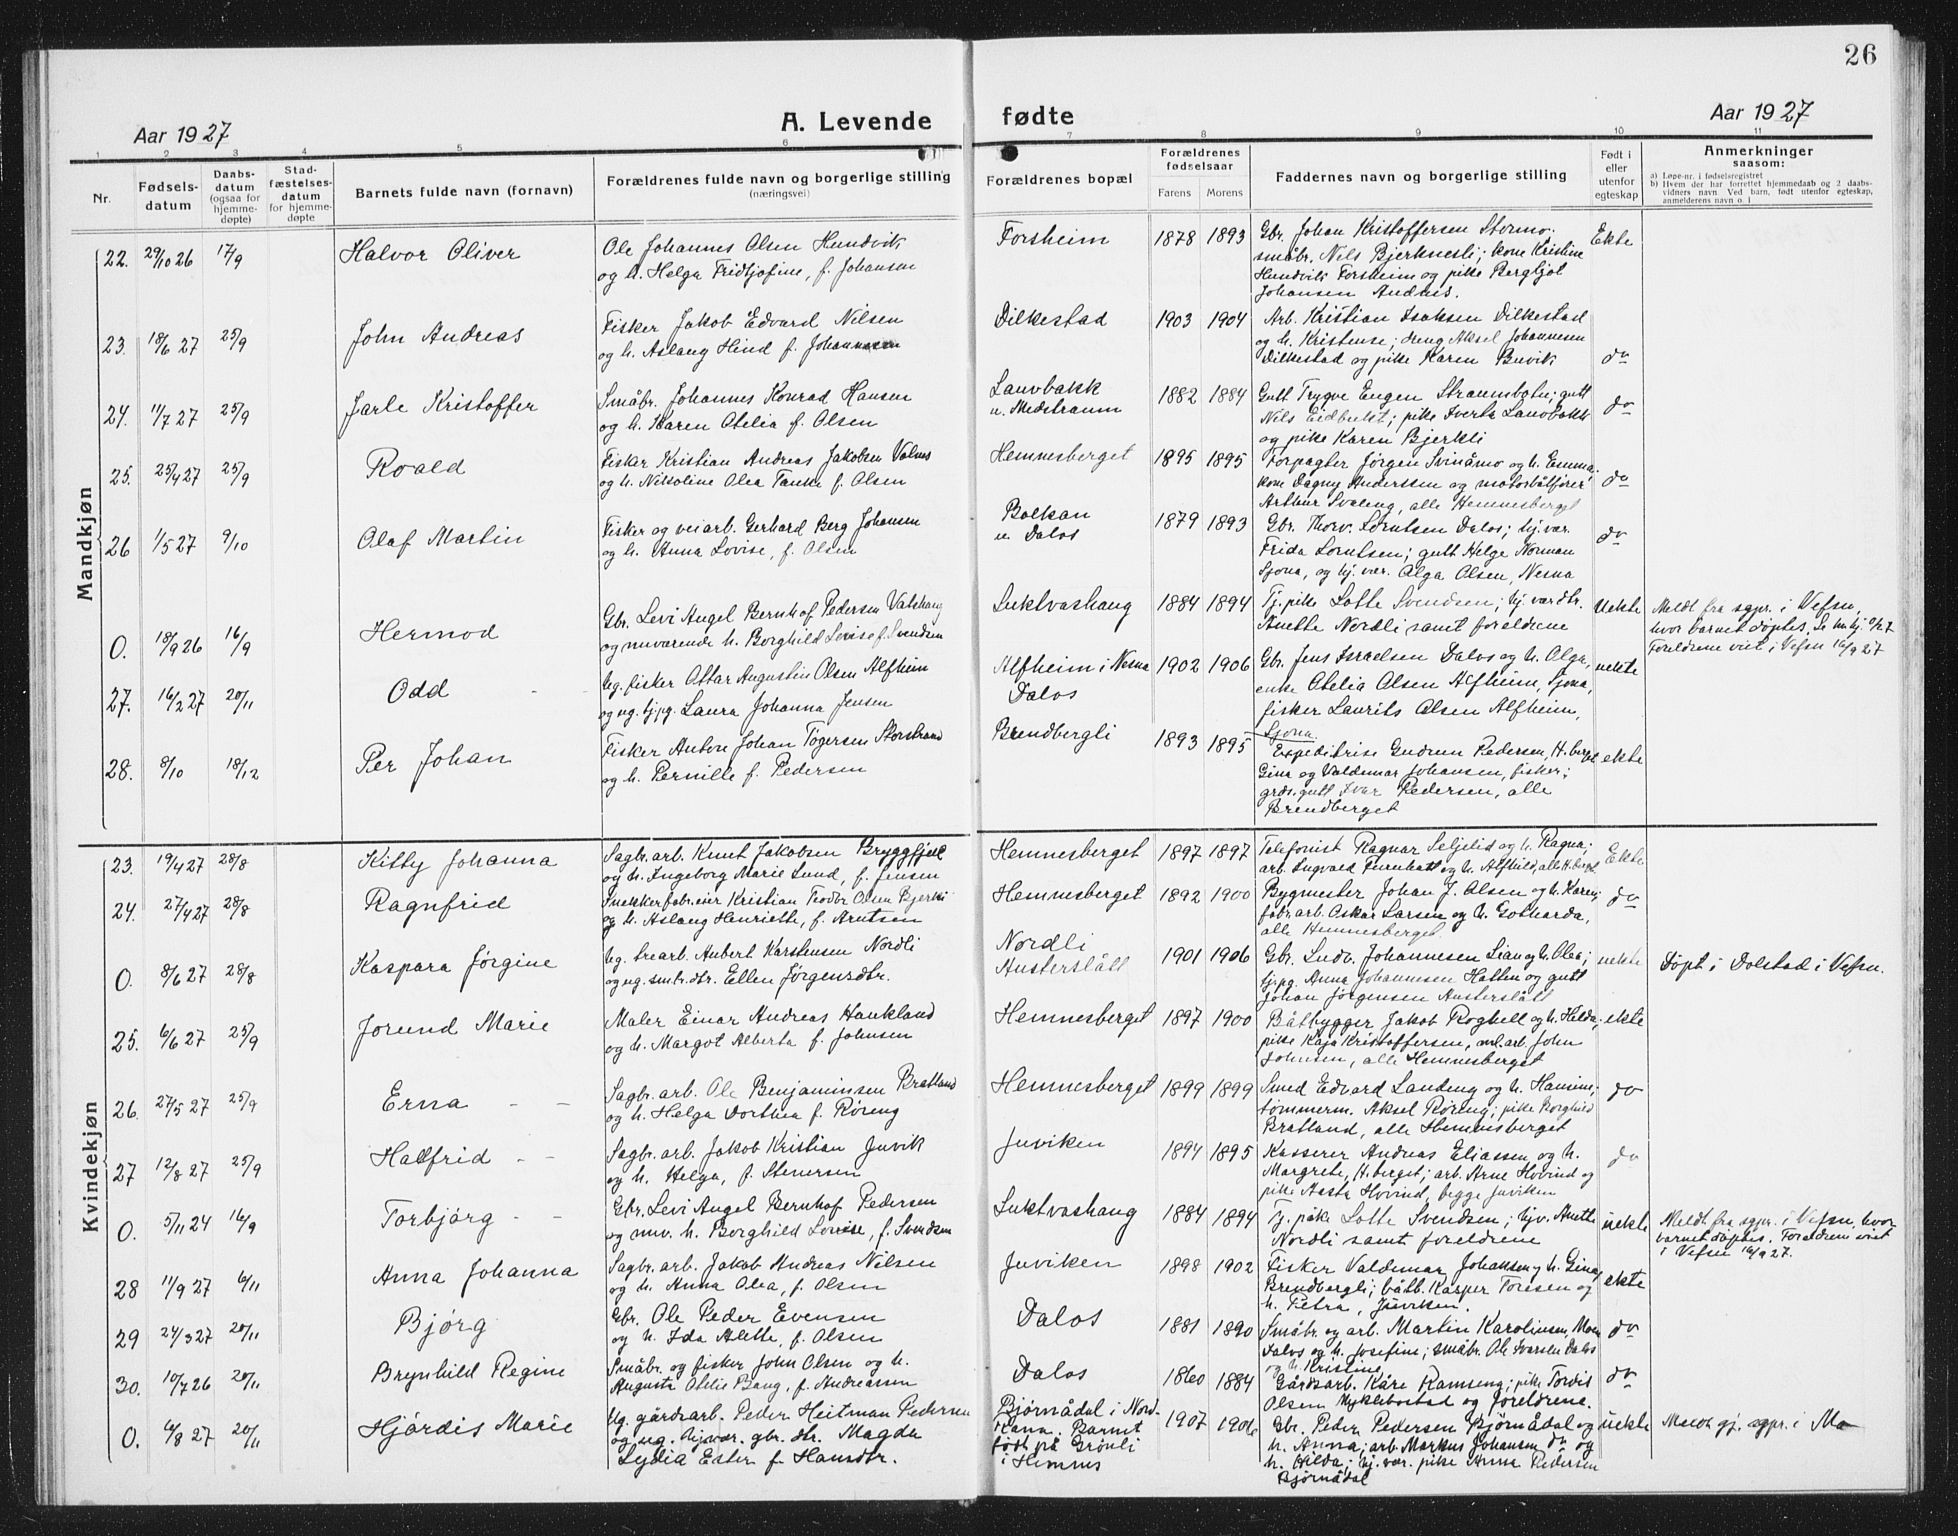 26
Aar 1927
A. Levende fødte
Aar 1927
1 2 3 4 5 6 7 8 9 10 11
Nr.
Fødsels-
datum
Daabs-
datum
(ogsaa for
hjemme-
døpte)
Stad-
fæstelses-
datum
for hjemme-
døpte
Barnets fulde navn (fornavn)
Forældrenes fulde navn og borgerlige stilling
(næringsvei)
Forældrenes bopæl
Forældrenes
fødselsaar
Farens Morens
Faddernes navn og borgerlige stilling
Født i
eller
utenfor
egteskap
Anmerkninger
saasom:
a) Løpe-nr. i fødselsregistret
b) Hvem der har forrettet hjemmedaab og 2 daabs-
vidners navn. Ved barn, født utenfor egteskap,
anmelderens navn o. l
Mandkjøn
22. 29/10 26 17/9 Halvor Oliver
Ole Johannes Olsen Hundvik
og h. Helga Fridtjofine, f. Johansen
Forsheim 1878 1893
Gbr. Johan Kristoffersen Stormo,
småbr. Nils Bjerknesli; kone Kristine
Hundvik Forsheim og pike Bergljot
Johansen
Ekte
23. 18/6 27 25/9 John Andreas
Fisker Jakob Edvard Nilsen
og h. Aslaug Hind f. Johannesen
Dilkestad 1903 1904
Arb. Kristian Isaksen Dilkestad
og h. Kristense; dreng Aksel Johannesen
Dilkestad og pike Karen Buvik
do
24. 11/7 27 25/9 Jarle Kristoffer
Småbr. Johannes Konrad Hansen
og h. Karen Otelia f. Olsen
Lauvbakk
u. Medstraum 1882 1884
Gutt Trygve Eugen Straumsbotn; gutt
Nils; pike Lauvbakk
og pike Karen Bjerkli
do
25. 25/4 27 25/9 Roald
Fisker Kristian Andreas Jakobsen Valnes
og h. Nikoline Olea Tanke f. Olsen
Hemnesberget 1895 1895
Forpagter Jørgen Svinåmo og h. Emma,
kone Dagny Anderssen og motorbåtfører
Arthur Svaleng, alle Hemnesberget
do
26 1/5 27 9/10 Olaf Martin
Fisker og veiarb. Gerhard Berg Johansen
og h. Anna Lovise, f. Olsen
Bolkan
u. Dalos 1879 1893
Gbr. Thorv. Lorntsen Dalos; hj.vær.
Frida Lorntsen; gutt Helge Norman
Sjona, og hj. vær. Olga Olsen, Nesna
do
0. 18/9 26 16/9 Hermod
Gbr. Levi Angel Bernhof Pedersen Vatshaug
og nuværende h. Borghild Lovise f. Svendsen
Luktvashaug 1884 1894
Tj. pike Lotte Svendsen; hj. vær dtr.
Anette Nordli samt foreldrene
uekte
Meldt fra sgpr. i Vefsn,
hvor barnet døptes.
Foreldrene viet i Vefsn 16/9 27
27. 16/2 27 20/11 Odd
Ug. fisker Ottar Augustin Olsen Alfheim
og ug. tj.pg. Laura Johanna Jensen
Alfheim i Nesna
Dalos 1902 1906
Gbr. Jens Israelsen Dalos og h. Olga,
enke Otelia Olsen Alfheim, Sjona,
fisker Laurits Olsen Alfheim,
Sjona.
uekte
28. 8/10 18/12 Per Johan
Fisker Anton Johan Tøgersen Storstrand
og h. Pernille f. Pedersen
Brendbergli 1893 1895
Expeditrise Gudrun Pedersen, H.berget
Gina og Valdemar Johansen, fisker;
grds.gutt Ivar Pedersen, alle
Brendberget
ekte
Kvindekjøn
23. 19/4 27 28/8 Kitty Johanna
Sagbr.arb. Knut Jakobsen Bryggfjell
og h. Ingeborg Marie Lund, f. Jensen
Hemnesberget 1897 1897
Telefonist Ragnar Seljelid og h. Ragna;
arb. Ingvald og h. Alfhild, alle H.berget
Ekte
24. 27/4 27 28/8 Ragnfrid
Snekkerfabreier Kristian Teodor Olsen Bjerkli
og h. Aslaug Henriette, f. Arntsen
Hemnesberget 1892 1900
Bygmester Johan J. Olsen og h. Karen;
fabr.arb. Oskar Larsen og h. Gotharda,
alle Hemnesberget
do
0. 8/6 27 28/8 Kaspara Jørgine
Ug. trearb. Anbert Karstensen Nordli
og ug. småbr.dtr. Ellen Jørgensdtr.
Nordli
Austerslått 1901 1906
Gbr. Ludv. Johannesen Lian og h. Olea;
tj.pg. Anna Johannesen Hatten og gutt
Johan Jørgensen Austerslått
uekte
Døpt i Dolstad i Vefsn.
25. 6/6 27 25/9 Jorund Marie
Maler Einar Andreas Haukland
og h. Margot Alberta f. Johnsen
Hemnesberget 1897 1900
Båtbygger Jakob Roghell og h. Helda;
pike Kaja Kristoffersen, ml. arb. John
Johnsen, alle Hemnesberget
ekte
26. 27/5 27 25/9 Erna
Sagbr. arb. Ole Benjaminsen Bratland
og h. Helga Dorthea f. Røreng
Hemnesberget 1899 1899
Smed Edvard Landeng og h. Hansine;
tømmerm. Aksel Røreng; pike Borghild
Bratland, alle Hemnesberget
do
27 12/8 27 25/9 Hallfrid
Sagbr. arb. Jakob Kristian Juvik
og h. Helga, f. Stenersen
Juviken 1894 1895
Kasserer Andreas Eliassen og h.
Margrete, H.berget; arb. Arne Hovind og
pike Aasta Hovind, begge Juviken
do
0. 5/11 24 16/9 Torbjørg
Gbr. Levi Angel Bernhof Pedersen
og nuv. h. Borghild Lovise, f. Svendsen
Luktvashaug 1884 1894
Tj. pike Lotte Svendsen; hjv. Anette
Nordli samt foreldrene
uekte
Meldt fra sgpr. i Vefsn, hvor
barnet døptes. Foreldrene viet
i Vefsn 16/9 27.
28 11/9 27 6/11 Anna Johanna
Sagbr. arb. Jakob Andreas Nilsen
og h. Anna Olea, f. Olsen
Juviken 1898 1902
Fisker Valdemar Johansen og h. Gina,
Brendbergli; båtb. Kasper Toresen og
h. Petra, Juviken.
ekte
29 24/3 27 20/11 Bjørg
Gbr. Ole Peder Evensen
og h. Ida Alette, f. Olsen
Dalos 1881 1890
Småbr. og arb. Martin Karolinsen, Moen
Dalos og h. Josefine; småbr. Ole Iversen Dalos
og h. Kristine
do
30. 10/7 26 20/11 Brynhild Regine
Småbr. og fisker John Olsen og h.
Augusta Otelie Bang, f. Andreassen
Dalos 1860 1884
Gårdsarb. Kåre Ramseng; pike Tordis
Olsen Myklebostad og foreldrene.
do
0. 6/8 27 20/11 Hjørdis Marie
Ug. gårdsarb. Peder Heitman Pedersen
og ug. hj.vær. gbr. dtr. Magda
Lydia Ester f. Hansdtr.
Bjørnådal i Nord-
Rana. Barnet
født på Grønli
i Hemnes 1907 1906
Gbr. Peder Pedersen Bjørnådal og
h. Anna; arb. Markus Johansen do og
h. Hilda; hj. vær. pike Anna Pedersen
Bjørnådal
uekte
Meldt gj. sgpr. i Mo